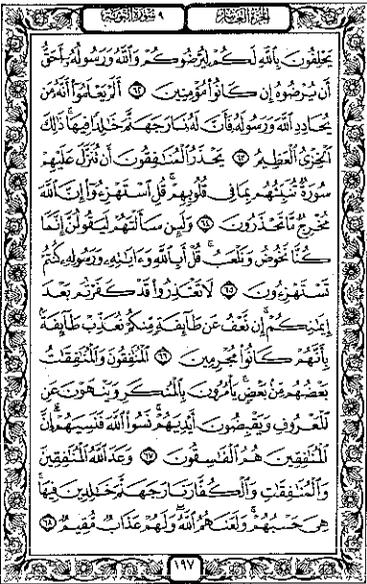 الجزء العاشر ٩ سورة التوبة
يَحْلِفُونَ بِٱللَّهِ لَكُمْ لِيُرْضُوكُمْ وَٱللَّهُ وَرَسُولُهُۥٓ أَحَقُّ
أَن يُرْضُوهُ إِن كَانُوا۟ مُؤْمِنِينَ ٦٢ أَلَمْ يَعْلَمُوٓا۟ أَنَّهُۥ مَن
يُحَادِدِ ٱللَّهَ وَرَسُولَهُۥ فَأَنَّ لَهُۥ نَارَ جَهَنَّمَ خَٰلِدًا فِيهَا ۚ ذَٰلِكَ
ٱلْخِزْىُ ٱلْعَظِيمُ ٦٣ يَحْذَرُ ٱلْمُنَٰفِقُونَ أَن تُنَزَّلَ عَلَيْهِمْ
سُورَةٌ تُنَبِّئُهُم بِمَا فِى قُلُوبِهِمْ ۚ قُلِ ٱسْتَهْزِءُوٓا۟ إِنَّ ٱللَّهَ
مُخْرِجٌ مَّا تَحْذَرُونَ ٦٤ وَلَئِن سَأَلْتَهُمْ لَيَقُولُنَّ إِنَّمَا
كُنَّا نَخُوضُ وَنَلْعَبُ ۚ قُلْ أَبِٱللَّهِ وَءَايَٰتِهِۦ وَرَسُولِهِۦ كُنتُمْ
تَسْتَهْزِءُونَ ٦٥ لَا تَعْتَذِرُوا۟ قَدْ كَفَرْتُم بَعْدَ
إِيمَٰنِكُمْ ۚ إِن نَّعْفُ عَن طَآئِفَةٍ مِّنكُمْ نُعَذِّبْ طَآئِفَةًۢ
بِأَنَّهُمْ كَانُوا۟ مُجْرِمِينَ ٦٦ ٱلْمُنَٰفِقُونَ وَٱلْمُنَٰفِقَٰتُ
بَعْضُهُم مِّنۢ بَعْضٍ ۚ يَأْمُرُونَ بِٱلْمُنكَرِ وَيَنْهَوْنَ عَنِ
ٱلْمَعْرُوفِ وَيَقْبِضُونَ أَيْدِيَهُمْ ۚ نَسُوا۟ ٱللَّهَ فَنَسِيَهُمْ ۗ إِنَّ
ٱلْمُنَٰفِقِينَ هُمُ ٱلْفَٰسِقُونَ ٦٧ وَعَدَ ٱللَّهُ ٱلْمُنَٰفِقِينَ
وَٱلْمُنَٰفِقَٰتِ وَٱلْكُفَّارَ نَارَ جَهَنَّمَ خَٰلِدِينَ فِيهَا ۚ
هِىَ حَسْبُهُمْ ۚ وَلَعَنَهُمُ ٱللَّهُ ۖ وَلَهُمْ عَذَابٌ مُّقِيمٌ ٦٨
١٩٧